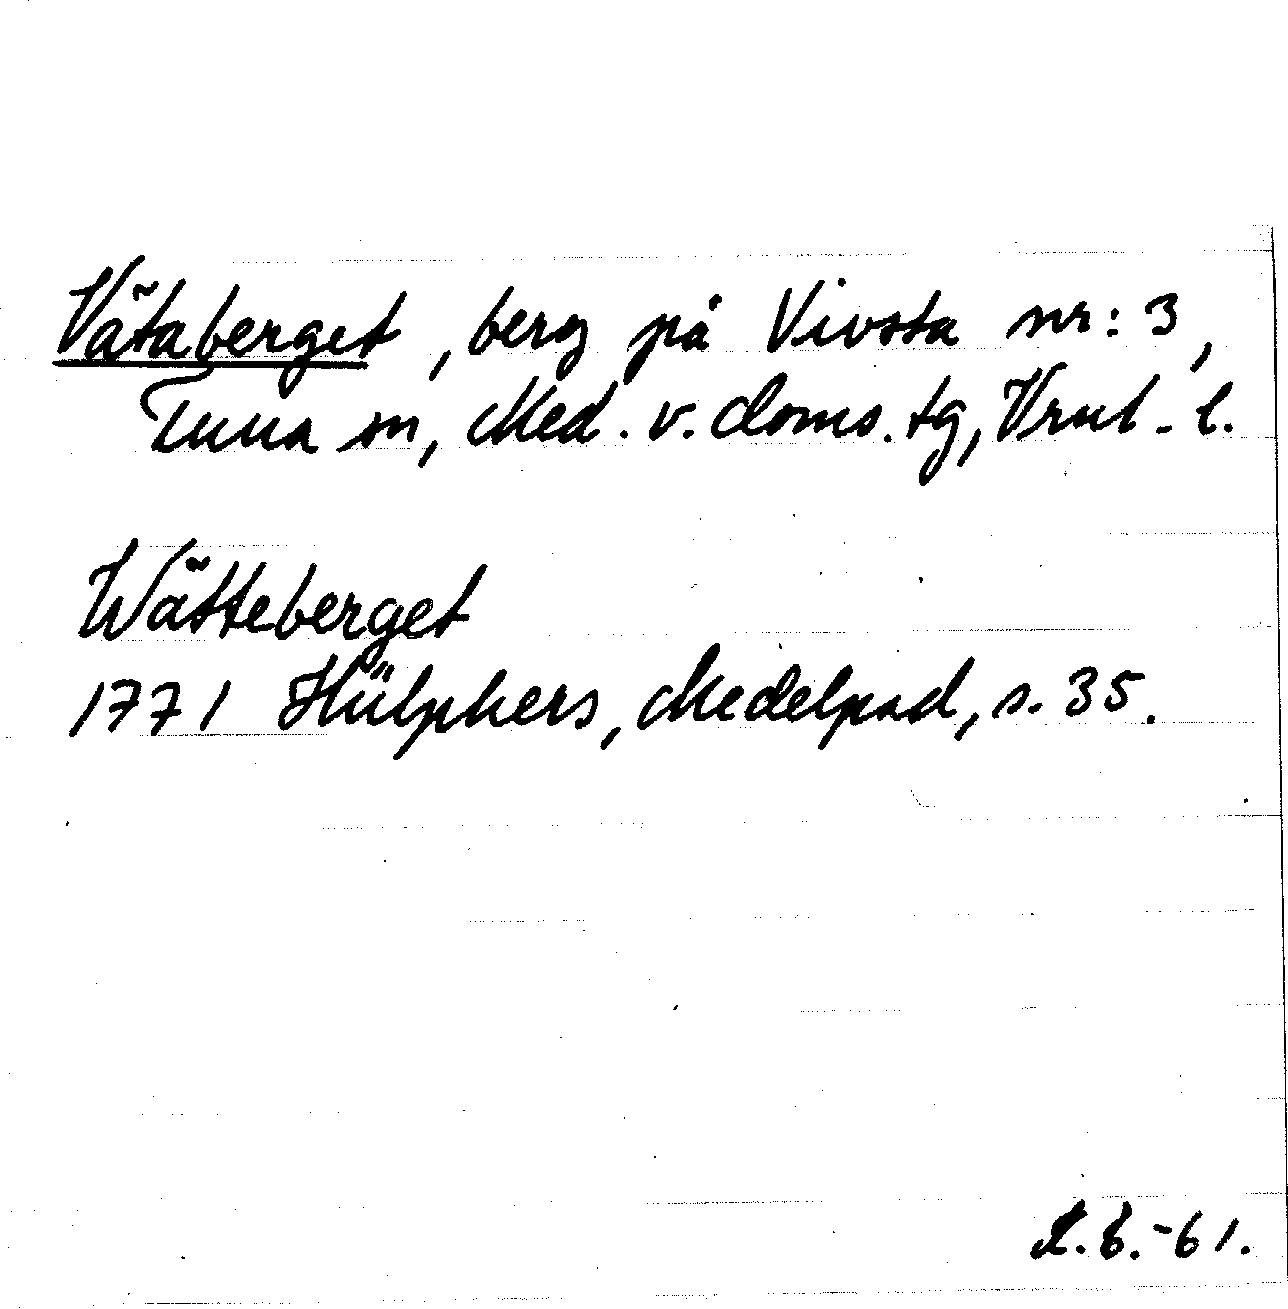 Vätaberget, berg på Vivsta nr: 3,
Tuna sn, Med. v. doms. tg, Vrnl-l.
Wätteberget
1771 Hülphers, Medelpad, s. 35.